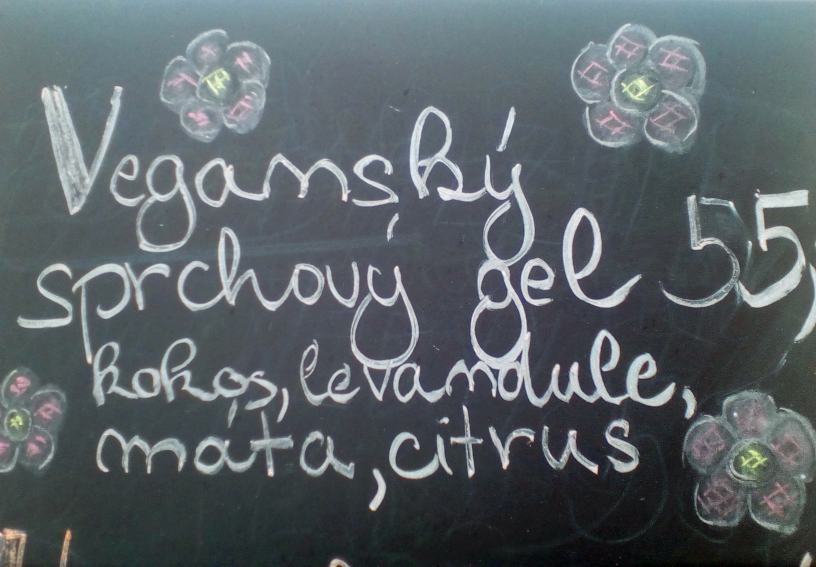 Veganský
sprchový gel 55,
kokos, levandule,
máta, citrus